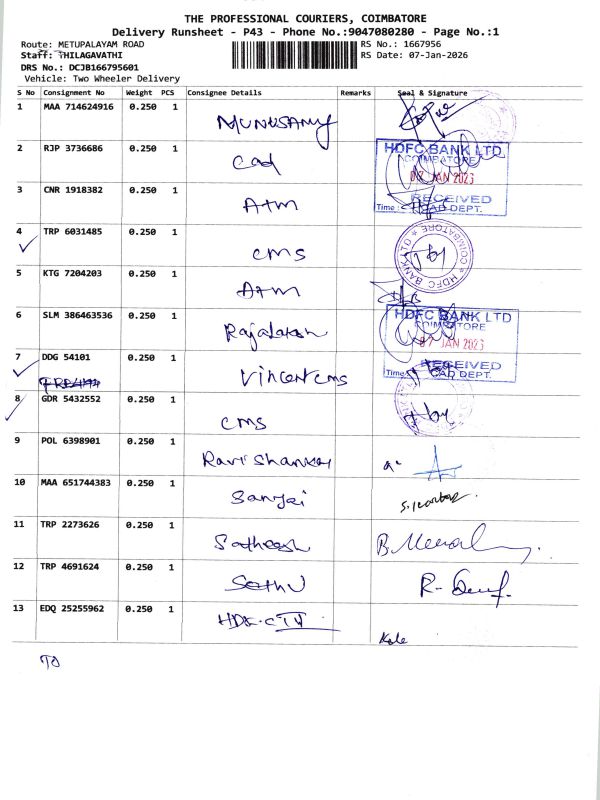 THE PROFESSIONAL COURIERS, COIMBATORE
Delivery Runsheet - P43 - Phone No.:9047080280 - Page No.:1
Route: METUPALAYAM ROAD RS No.: 1667956
Staff: THILAGAVATHI RS Date: 07-Jan-2026
DRS No.: DCJB166795601
Vehicle: Two Wheeler Delivery
S No Consignment No Weight PCS Consignee Details Remarks Seal & Signature
1 MAA 714624916 0.250 1 MUNUSAMY
2 RJP 3736686 0.250 1 Cad
HDFC BANK LTD
COIMBATORE
07 JAN 2026
RECEIVED
Time: CAD DEPT.
3 CNR 1918382 0.250 1 Atm
4 TRP 6031485 0.250 1 cms
HDFC BANK LTD * COIMBATORE *
5 KTG 7204203 0.250 1 Atm
6 SLM 386463536 0.250 1
HDFC BANK LTD
COIMBATORE
07 JAN 2026
RECEIVED
Time: CAD DEPT.
7 DDG 54101 0.250 1 Vincent cms
8 GDR 5432552 0.250 1 cms
9 POL 6398901 0.250 1 Ravi Shankar
10 MAA 651744383 0.250 1 Sanjai
11 TRP 2273626 0.250 1 Satheesh
12 TRP 4691624 0.250 1 Sethu
13 EDQ 25255962 0.250 1
TO